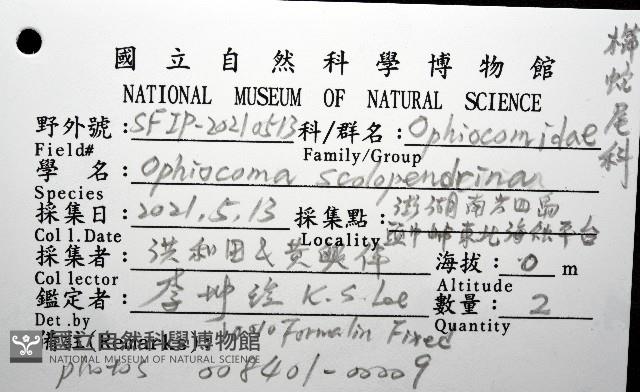 櫛蛇尾科
國立自然科學博物館
NATIONAL MUSEUM OF NATURAL SCIENCE
野外號:SFIP-20210513 科/群名:Ophiocomidae
Field# Family/Group
學 名:Ophiocoma scolopendrina
Species
採集日:2021.5.13 採集點:澎湖南方四島
頭巾嶼東北海蝕平台
Coll.Date Locality
採集者:洪和田 & 黃興倬 海拔:0 m
Collector Altitude
鑑定者:李坤瑄 K.S.Lee 數量:2
Det.by Quantity
(Remarks): Formalin Fixed
國立自然科學博物館
NATIONAL MUSEUM OF NATURAL SCIENCE
photos 008401-00009